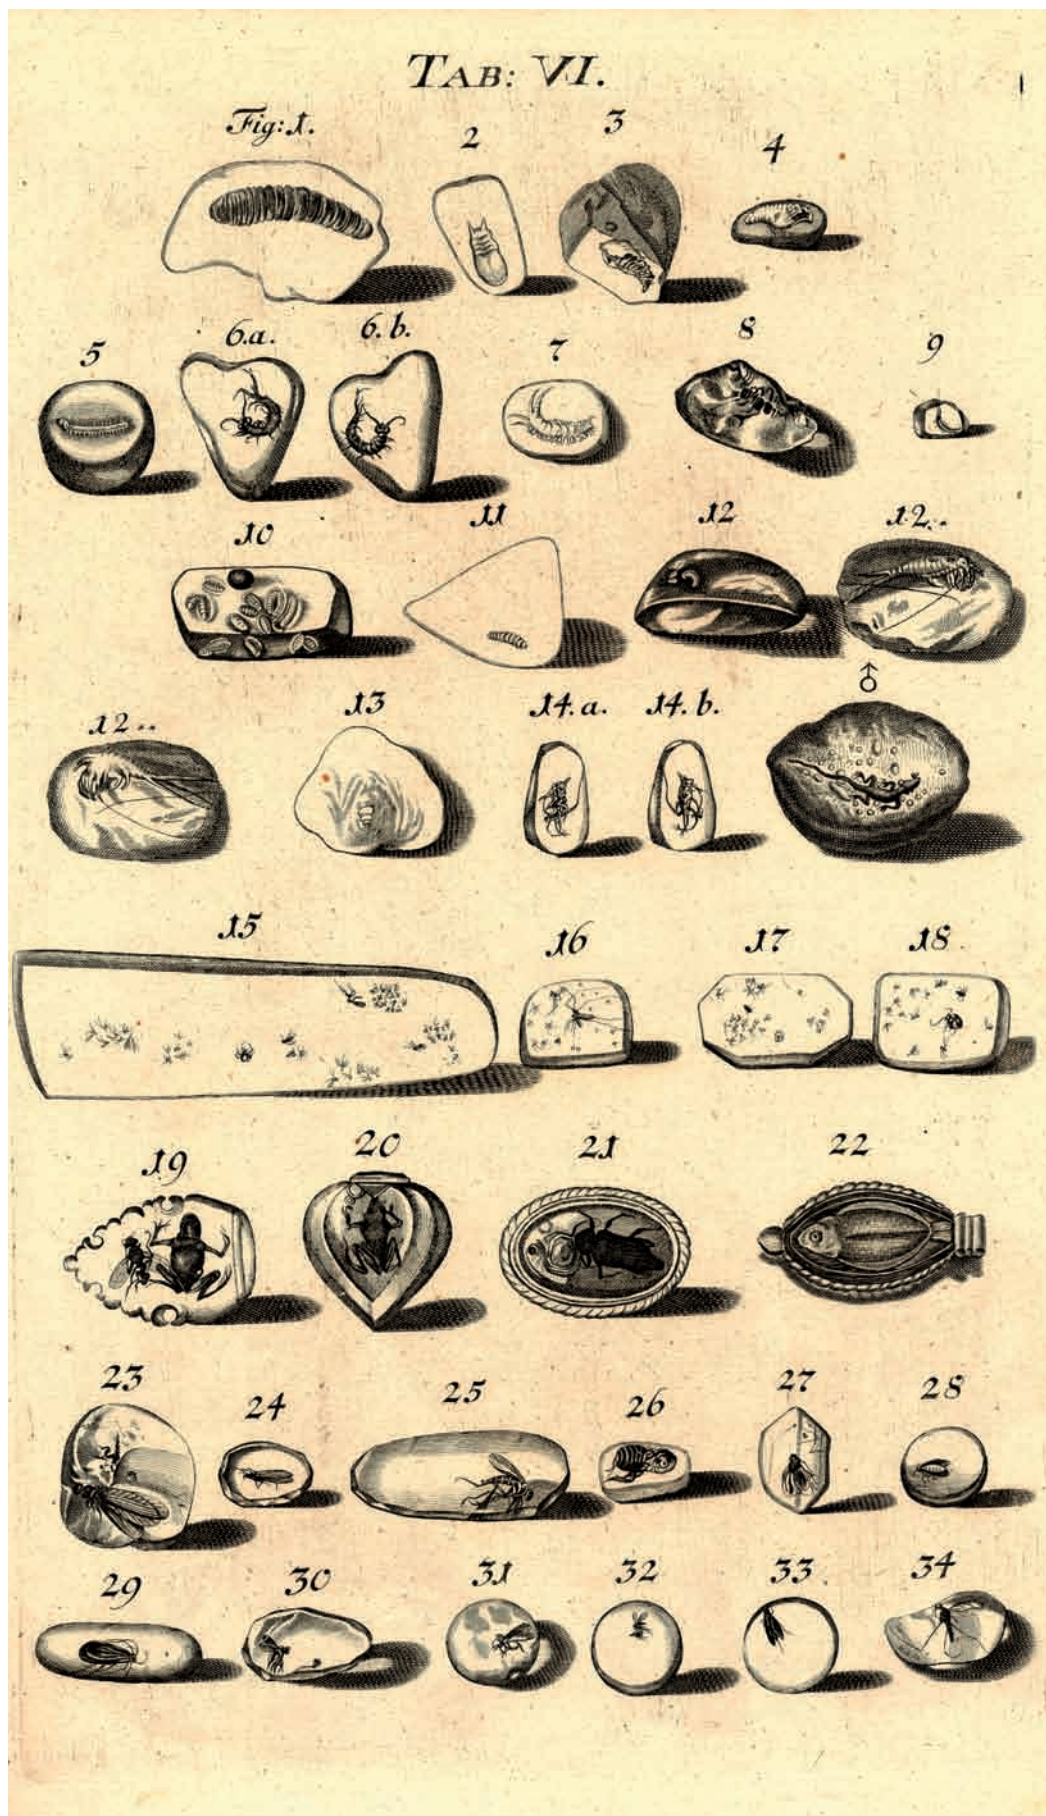 TAB: VI.
Fig: 1. 2 3 4
5 6.a. 6.b. 7 8 9
10 11 12 12..
12.. 13 14.a. 14.b. ♂
15 16 17 18.
19 20 21 22
23 24 25 26 27 28
29 30 31 32 33. 34